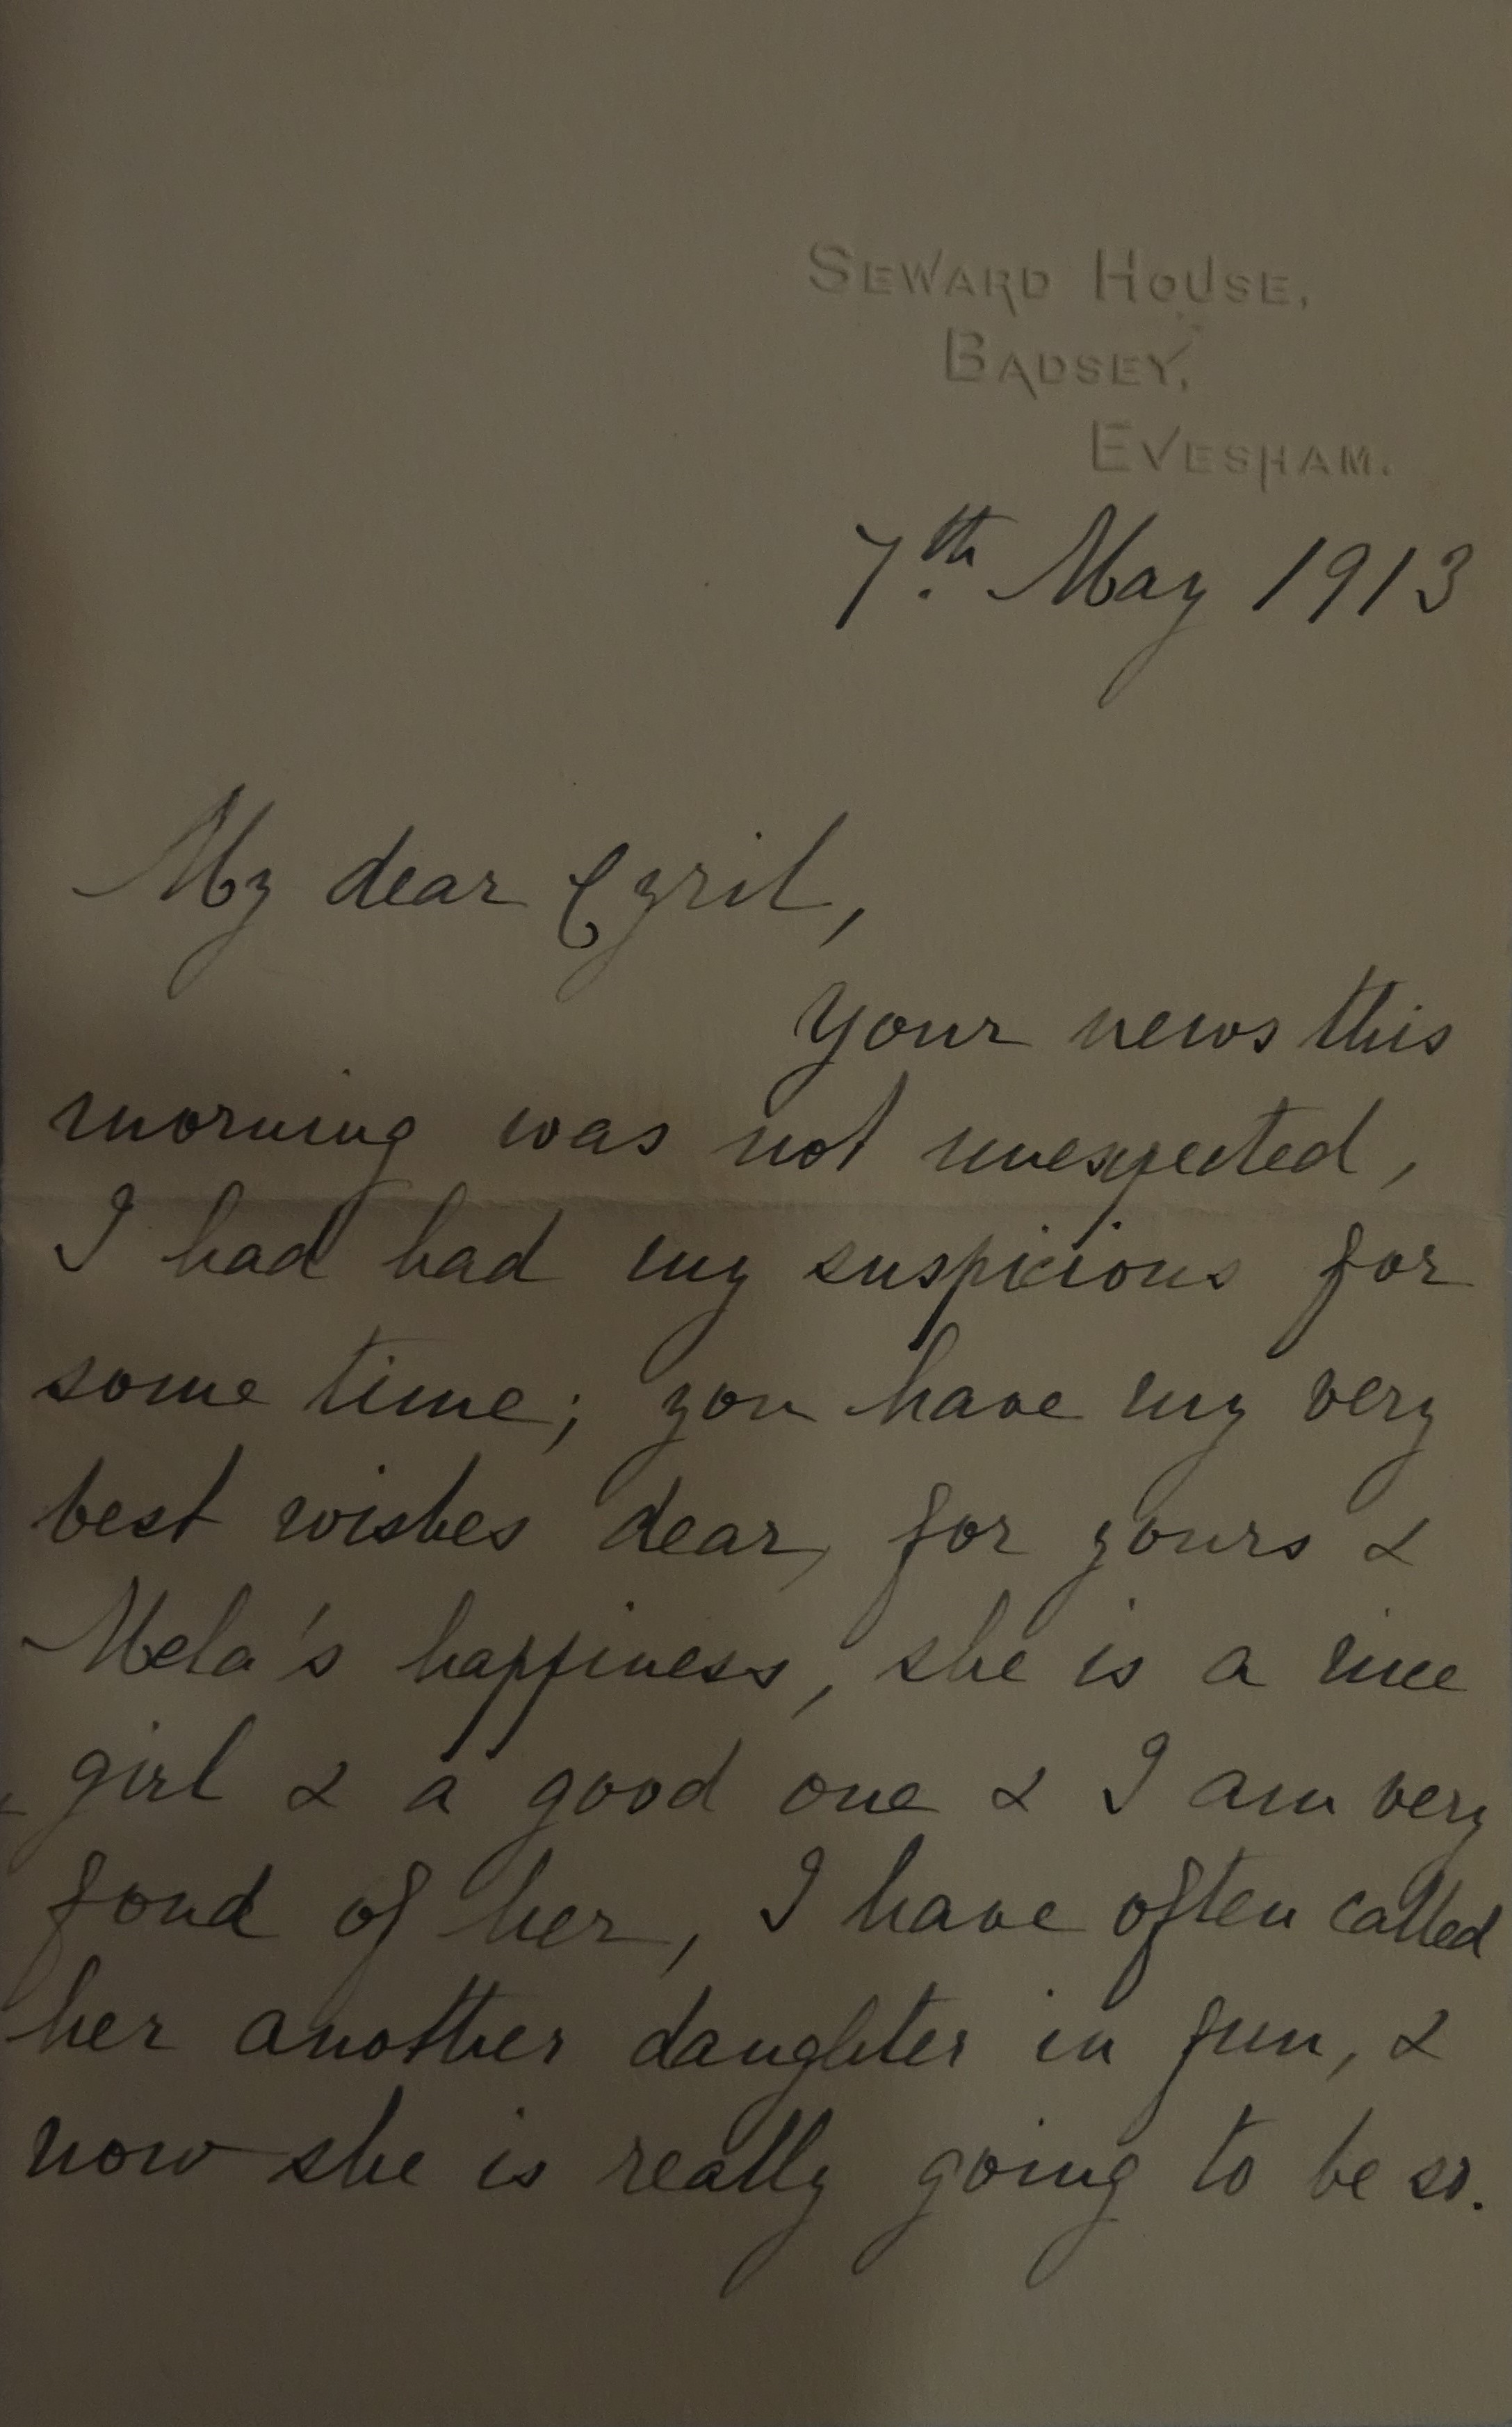 SEWARD HOUSE,
BADSEY,
EVESHAM.
7th May 1913
My dear Cyril,
Your news this
morning was not unexpected,
I had had my suspicions for
some time; you have my very
best wishes dear, for yours &
Mela's happiness, she is a nice
girl & a good one & I am very
fond of her, I have often called
her another daughter in fun, &
now she is really going to be so.